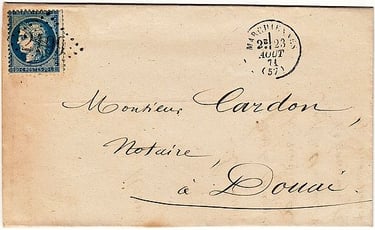 MARCHIENNES
2E 23
AOUT
71
(57)
Monsieur Cardon,
Notaire,
à Douai.